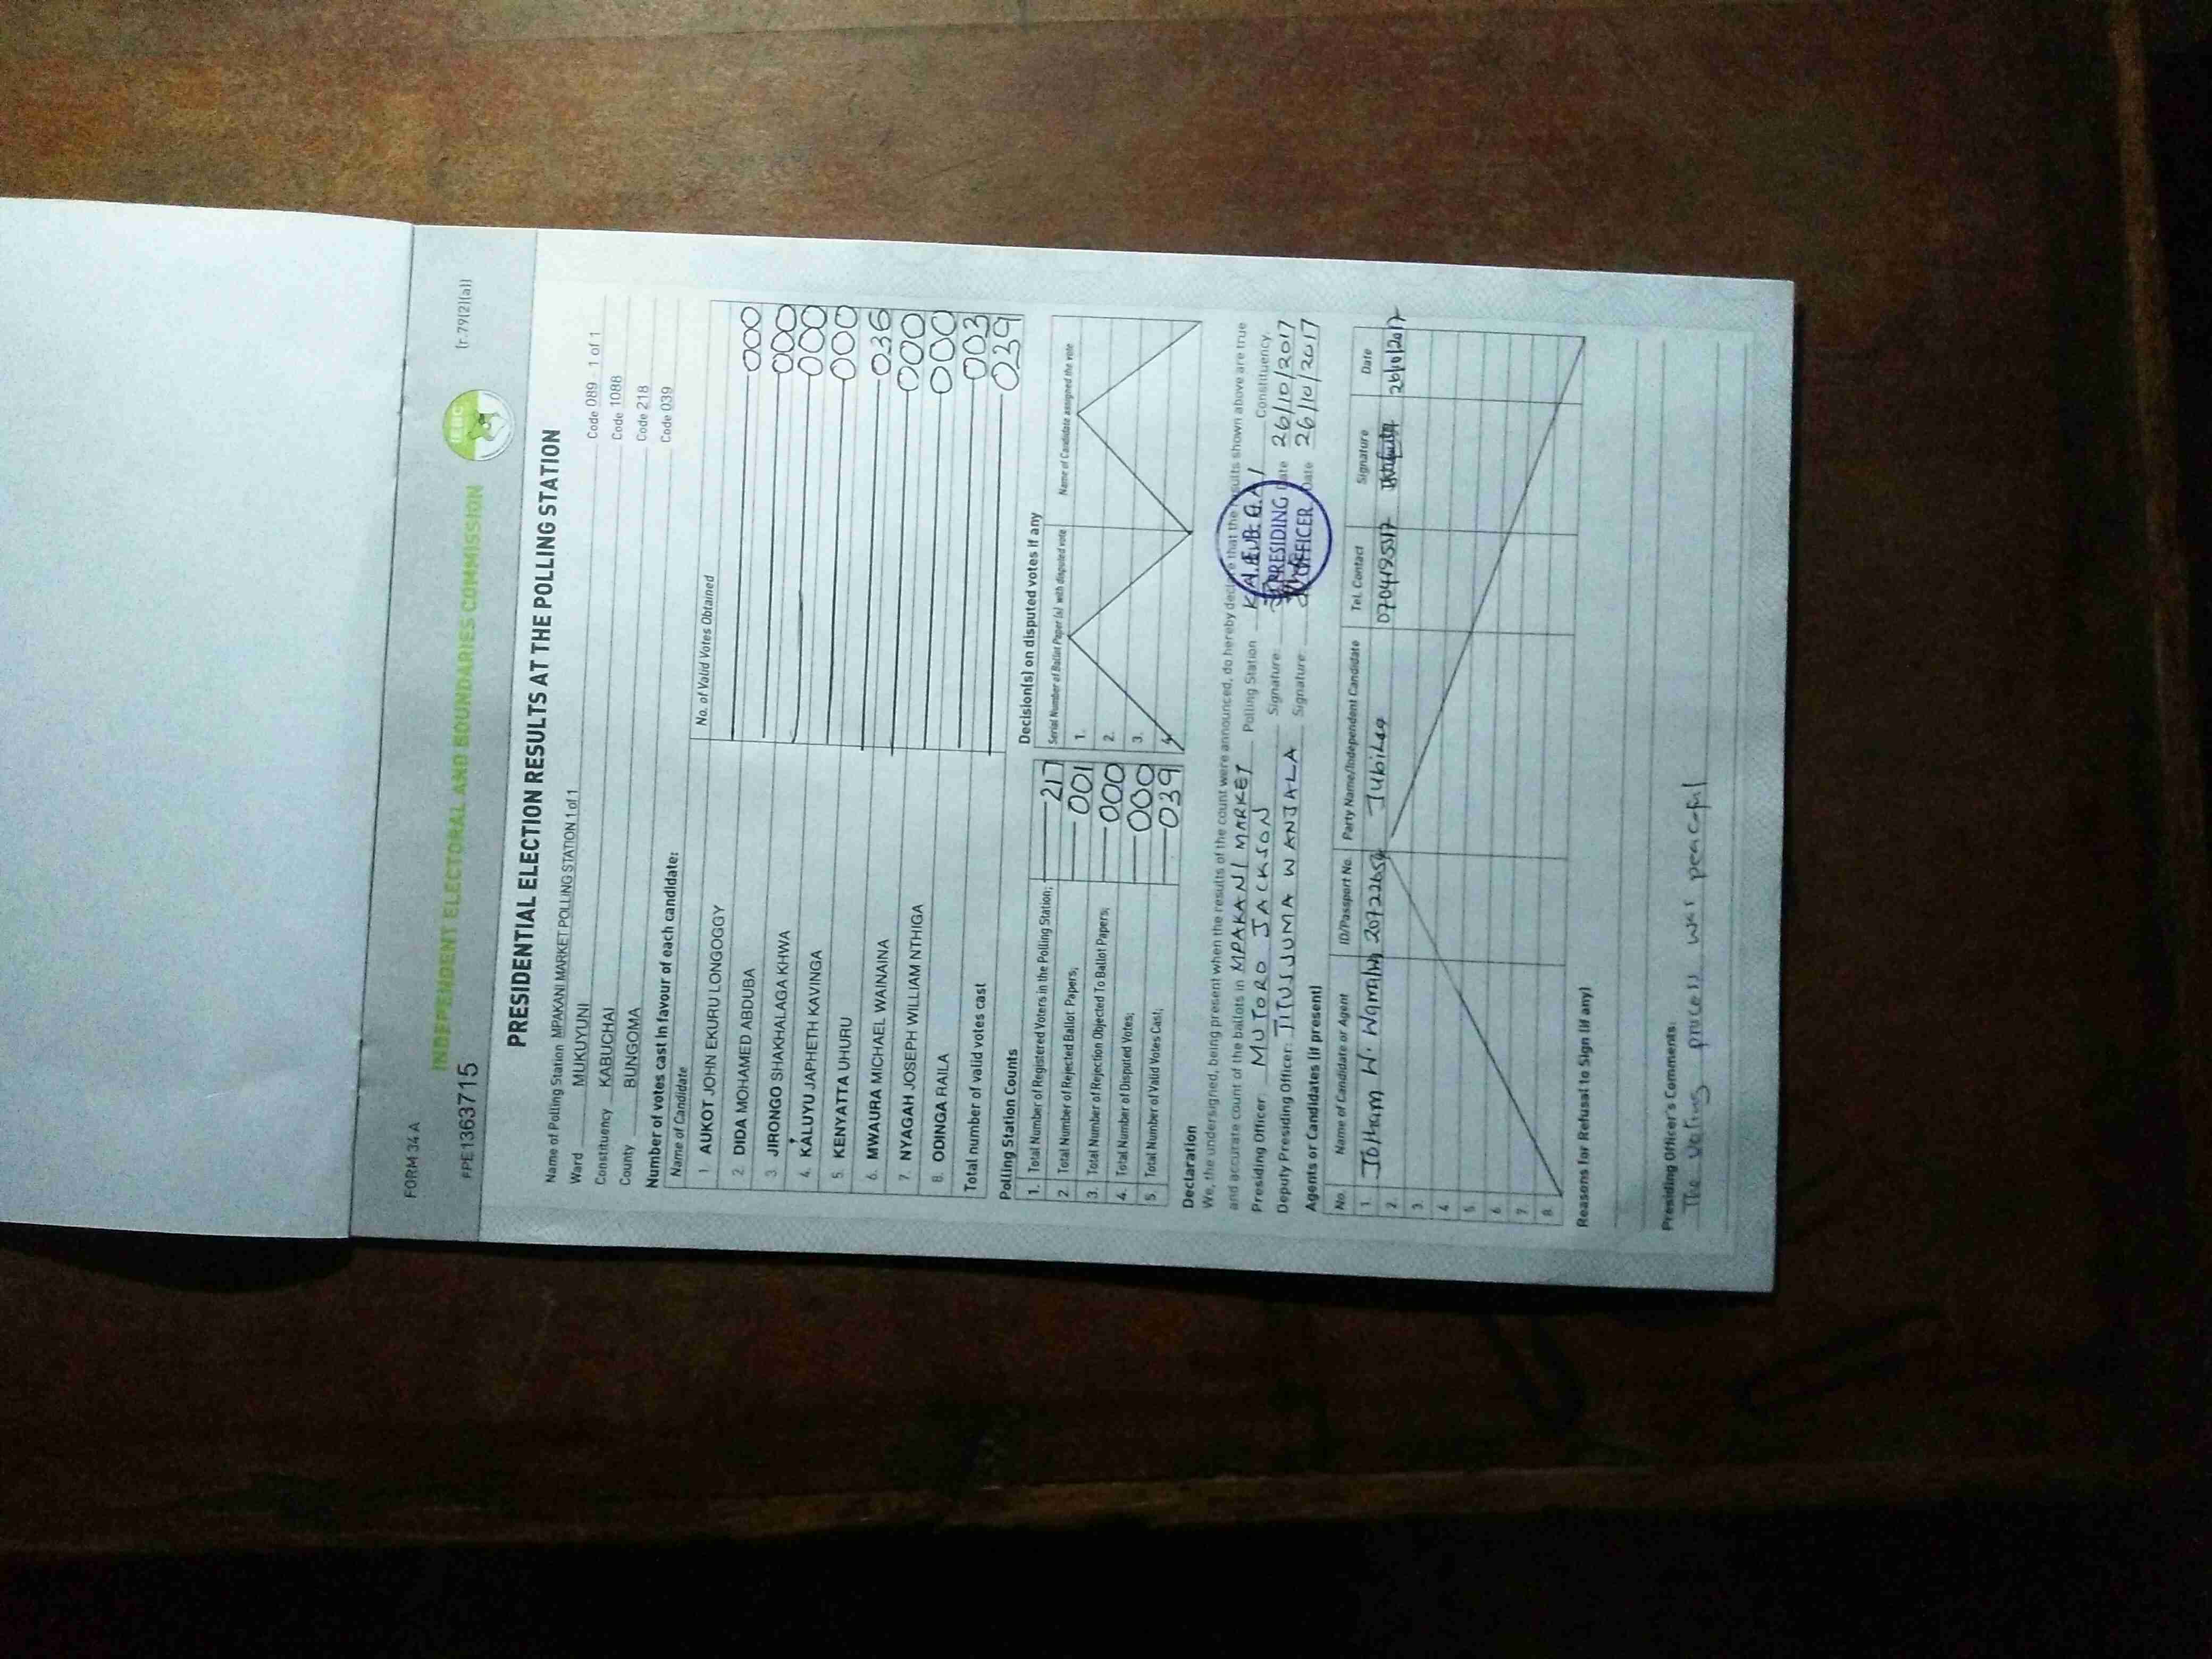 FORM 34 A
INDEPENDENT ELECTORAL AND BOUNDARIES COMMISSION
IEBC
[r.79(2)(a)]
FPE1363715
PRESIDENTIAL ELECTION RESULTS AT THE POLLING STATION
Name of Polling Station MPAKANI MARKET POLLING STATION 1 of 1 Code 089 - 1 of 1
Ward MUKUYUNI Code 1088
Constituency KABUCHAI Code 218
County BUNGOMA Code 039
Number of votes cast in favour of each candidate:
Name of Candidate No. of Valid Votes Obtained
1 AUKOT JOHN EKURU LONGOGGY 000
2. DIDA MOHAMED ABDUBA 000
3 JIRONGO SHAKHALAGA KHWA 000
4. KALUYU JAPHETH KAVINGA 000
5. KENYATTA UHURU 036
6. MWAURA MICHAEL WAINAINA 000
7. NYAGAH JOSEPH WILLIAM NTHIGA 000
8. ODINGA RAILA 003
Total number of valid votes cast 039
Polling Station Counts
1. Total Number of Registered Voters in the Polling Station; 217
2. Total Number of Rejected Ballot Papers; 001
3. Total Number of Rejection Objected To Ballot Papers; 000
4. Total Number of Disputed Votes; 000
5. Total Number of Valid Votes Cast; 039
Decision(s) on disputed votes if any
Serial Number of Ballot Paper (s) with disputed vote Name of Candidate assigned the vote
1.
2.
3.
4.
Declaration
We, the undersigned, being present when the results of the count were announced, do hereby declare that the results shown above are true
and accurate count of the ballots in MPAKANI MARKET Polling Station KABUCHAI Constituency.
Presiding Officer: MUTORO JACKSON Signature: Date 26/10/2017
Deputy Presiding Officer: TITUS JUMA WANJALA Signature: Date 26/10/2017
PRESIDING OFFICER
Agents or Candidates (if present)
No. Name of Candidate or Agent ID/Passport No. Party Name/Independent Candidate Tel. Contact Signature Date
1. Jotham W. 20722654 Jubilee 26/10/2017
2.
3.
4
5.
6.
7.
8.
Reasons for Refusal to Sign (if any)
Presiding Officer's Comments:
The voting process was peaceful